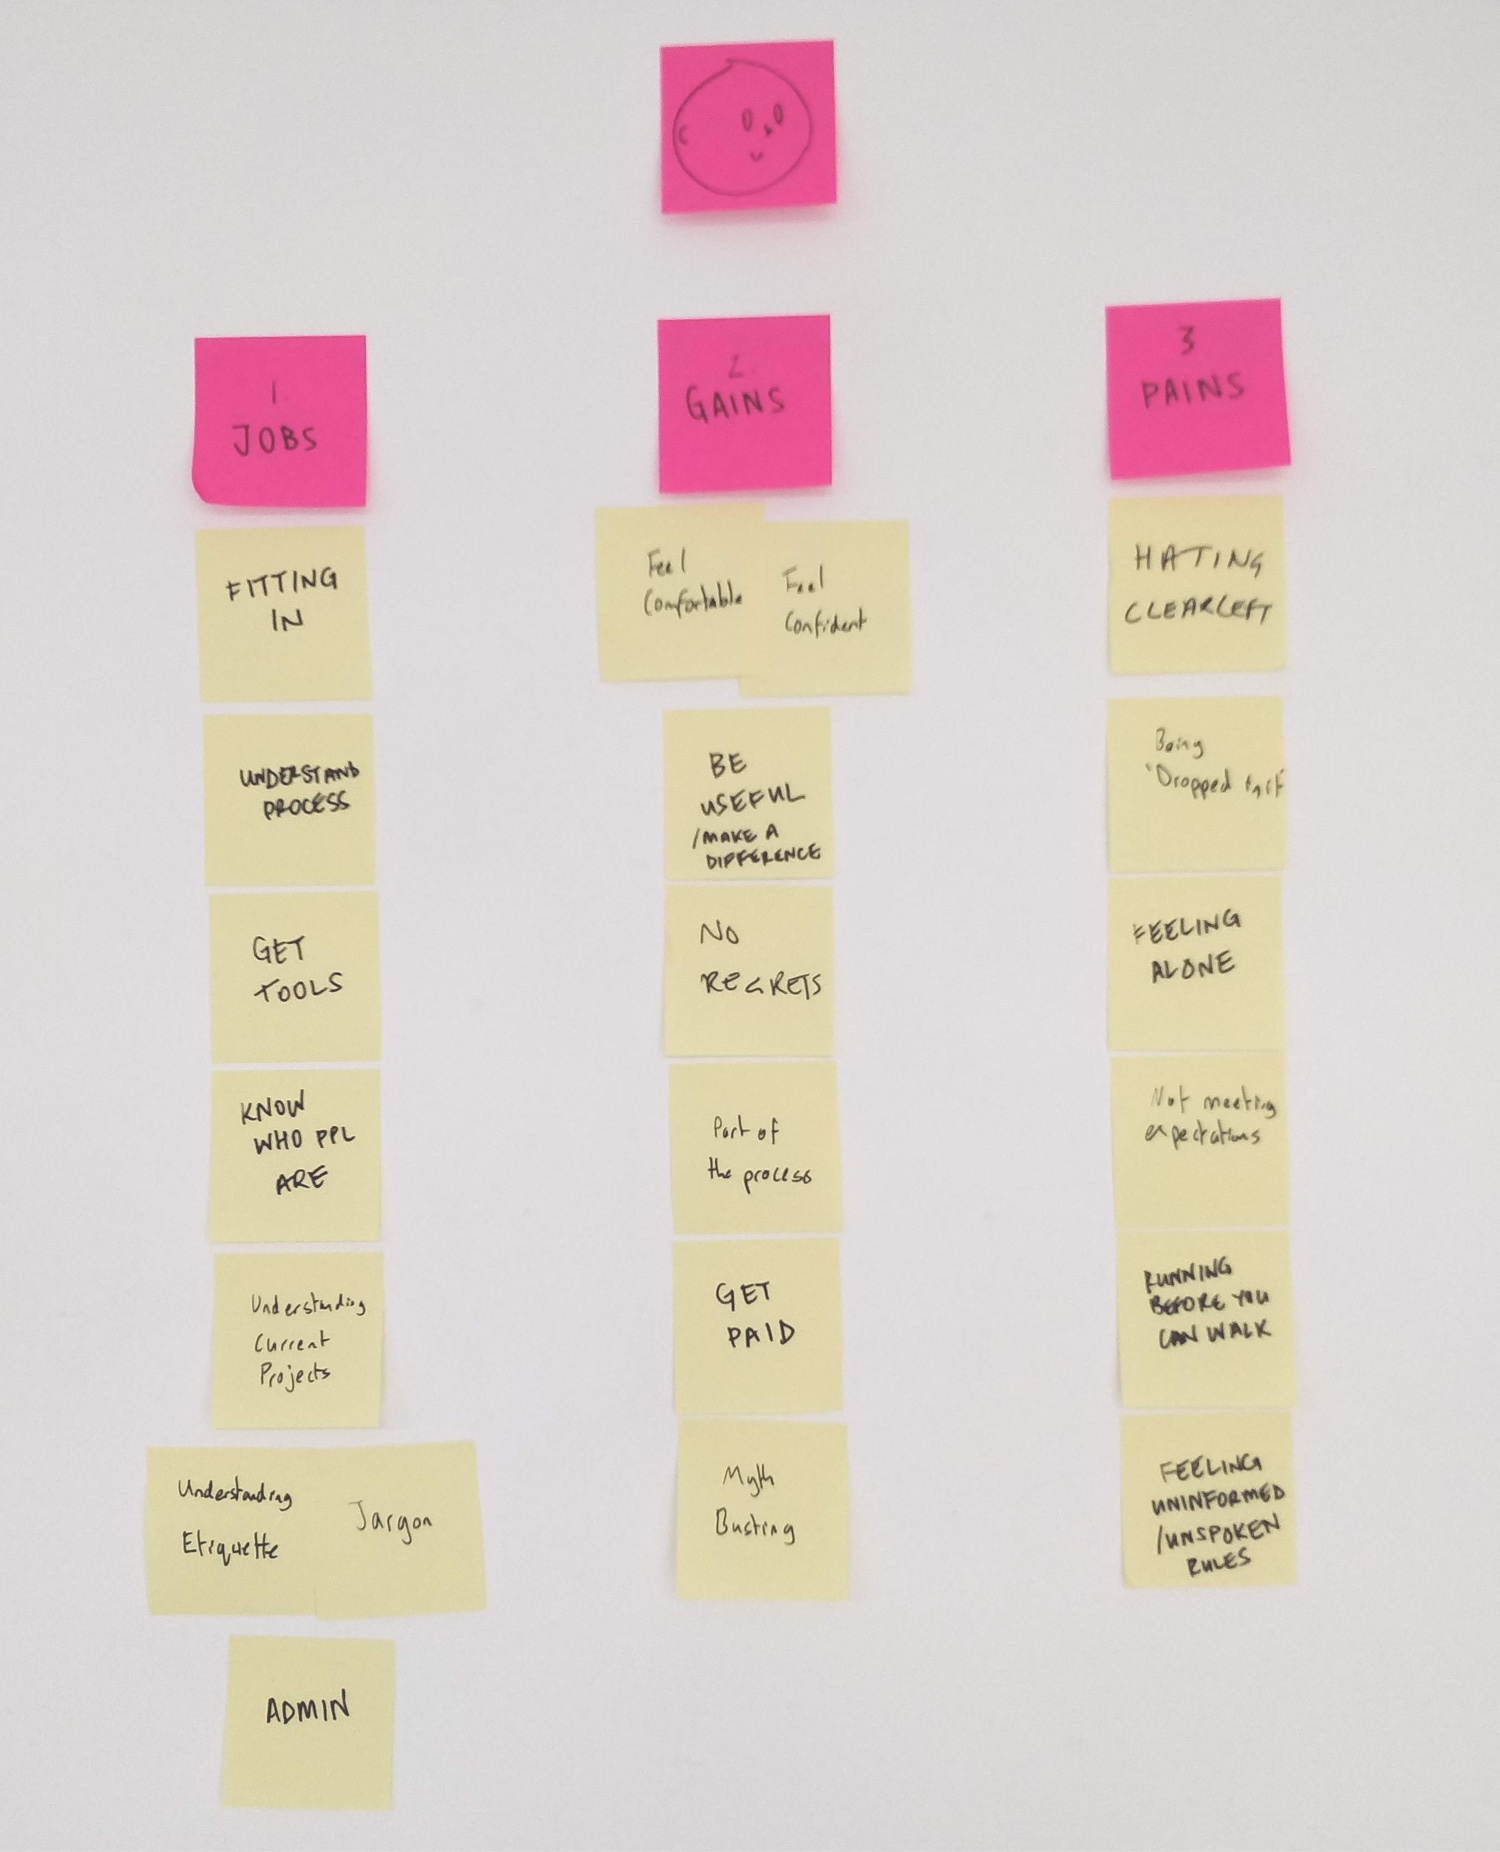 1.
JOBS
FITTING
IN
UNDERSTAND
PROCESS
GET
TOOLS
KNOW
WHO PPL
ARE
Understanding
Current
Projects
Understanding
Etiquette
Jargon
ADMIN
2.
GAINS
Feel
Comfortable
Feel
Confident
BE
USEFUL
/MAKE A
DIFFERENCE
NO
REGRETS
Part of
the process
GET
PAID
Myth
Busting
3
PAINS
HATING
CLEARLEFT
Being
'Dropped
FEELING
ALONE
Not meeting
expectations
RUNNING
BEFORE YOU
CAN WALK
FEELING
UNINFORMED
/UNSPOKEN
RULES